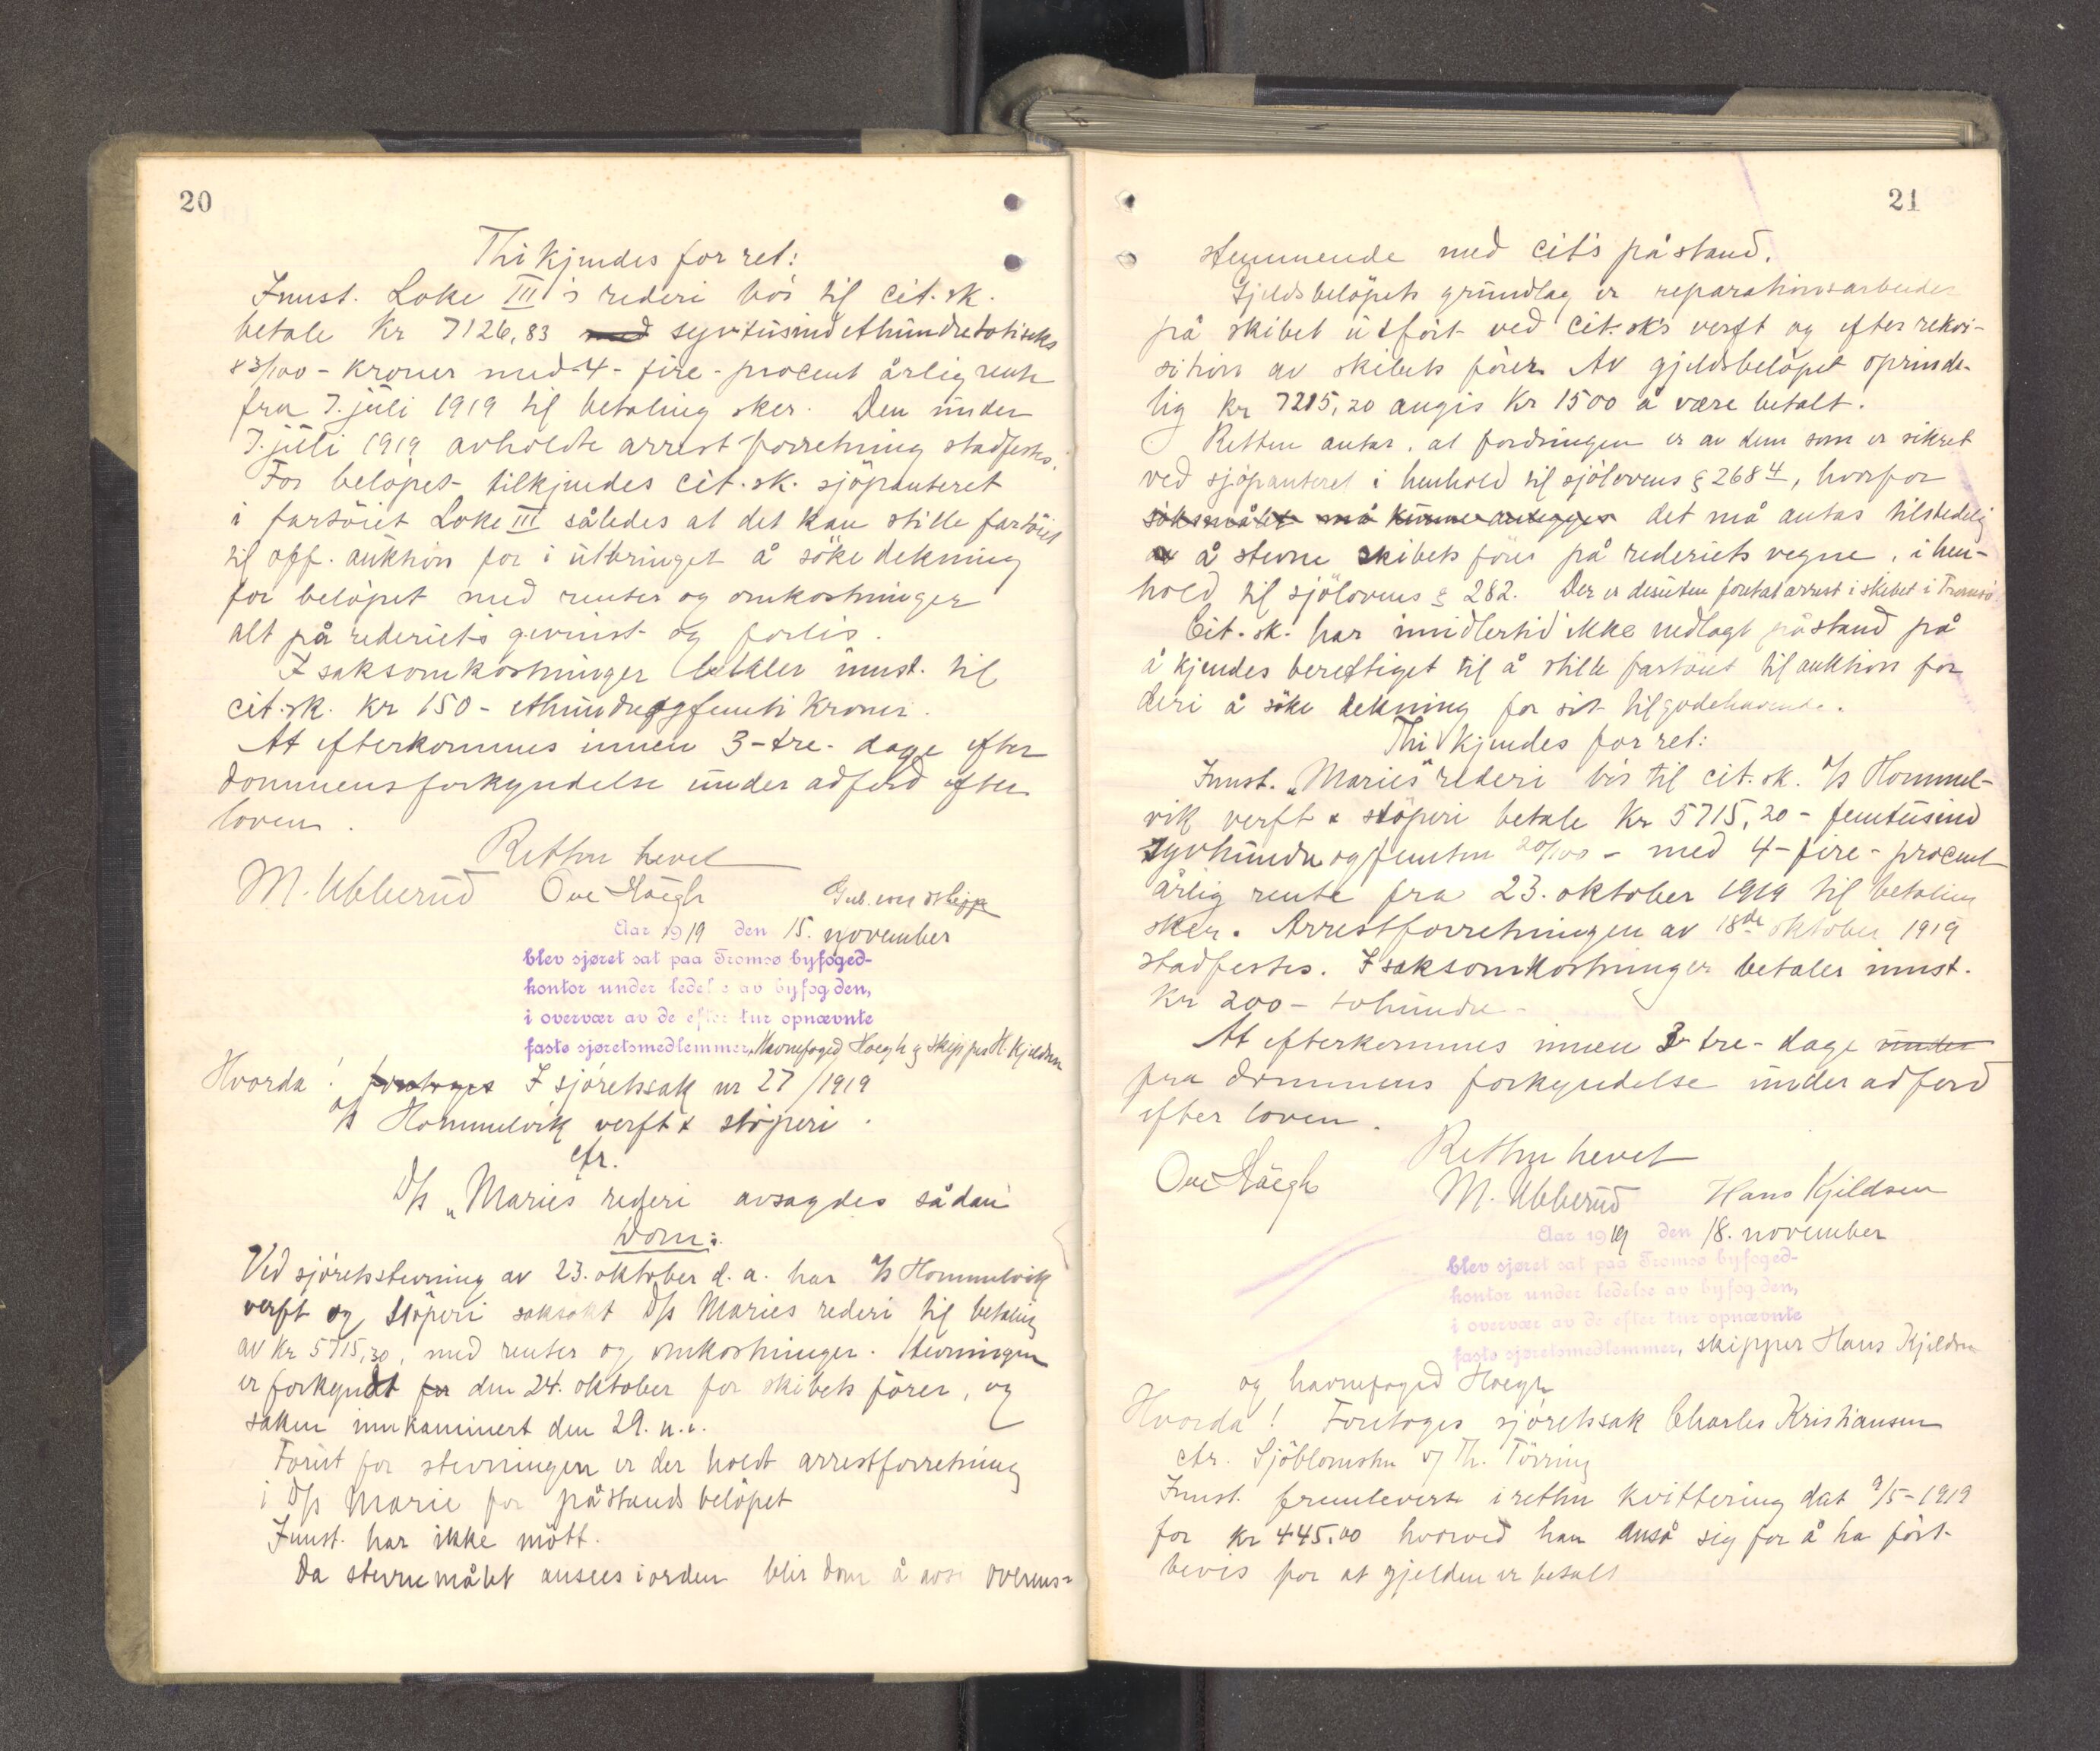 20
Thi kjendes for ret:
Innst. Loke III's rederi bör til cit. sk.
betale Kr 7126,83 med syvtusindethundredetotiseks
83/100 - kroner med 4 - fire - procent årlig rente
fra 7. juli 1919 til betaling sker. Den under
7. juli 1919 avholdte arrestforretning stadfestes.
For belöpet tilkjendes cit. sk. sjöpanteret
i fartöiet Loke III således at det kan stille fartöiet
til off. auktion for i utbringet å söke dekning
for belöpet med renter og omkostninger
alt på rederiets gevinst og forlis.
I saksomkostninger betaler innst. til
cit. sk. Kr 150 - ethundreogfemti kroner.
At efterkommes innen 3 - tre - dage efter
dommens forkyndelse under adferd efter
loven.
Retten hevet
M. Ubberud Ove Höegh
Aar 1919 den 15. november
blev sjøret sat paa Tromsø byfoged-
kontor under ledelse av byfogden,
i overvær av de efter tur opnævnte
faste sjøretsmedlemmer, Havnefoged Hoegh og skipper H. Kjeldsen
Hvorda! foretoges I sjöretssak nr 27/1919
A/S Hommelvik verft & stöperi
ctr.
D/S "Marie's rederi avsagdes sådan
Dom:
Ved sjöretsstevning av 23. oktober d. a. har A/S Hommelvik
verft og stöperi saksökt D/S Maries rederi til betaling
av Kr 5715,20, med renter og omkostninger. Stevningen
er forkyndt for den 24. oktober for skibets förer, og
saken inkaminert den 29. n. i.
Forut for stevningen er der holdt arrestforretning
i D/S Marie for påstandsbelöpet
Innst. har ikke mött.
Da stevnemålet ansees i orden blir dom å avsi overens-
21
stemmende med cit's påstand.
Gjeldsbelöpets grundlag er reparationsarbeider
på skibet utfört ved cit. sk's verft og efter rekvi-
sition av skibets förer. Av gjeldsbelöpet oprinde-
lig Kr 7215,20 angis Kr 1500 å være betalt.
Retten antar, at fordringen er av dem som er sikret
ved sjöpanteret i henhold til sjölovens § 268 4, hvorfor
söksmålet må kunne anlegges det må antas tilstedelig
av å stevne skibets förer på rederiets vegne, i hen-
hold til sjölovens § 282. Der er desuten foretat arrest i skibet i Tromsö
Cit. sk. har imidlertid ikke nedlagt påstand på
å kjendes berettiget til å stille fartöiet til auktion for
deri å söke dekning for sit tilgodehavende.
Thi kjendes for ret:
Innst. "Maries" rederi bör til cit. sk. A/S Hommel-
vik verft & stöperi betale Kr 5715,20 - femtusind
syvhundre og femten 20/100 - med 4 - fire - procent
årlig rente fra 23. oktober 1919 til betaling
sker. Arrestforretningen av 18de oktober 1919
stadfestes. I saksomkostninger betaler innst.
Kr 200 - tohundre -
At efterkommes innen 3 - tre - dage under
fra dommens forkyndelse under adferd
efter loven.
Retten hevet
Ove Höegh M. Ubberud Hans Kjeldsen
Aar 1919 den 18. november
blev sjøret sat paa Tromsø byfoged-
kontor under ledelse av byfogden,
i overvær av de efter tur opnævnte
faste sjøretsmedlemmer, skipper Hans Kjeldsen
og havnefoged Hoegh
Hvorda! Foretoges sjöretssak Charles Kristiansen
ctr. Sjöblomsten v/ Th. Törring
Innst. fremleverte i retten kvittering dat 9/5-1919
for Kr 445.00 hvorved han anså sig for å ha fört
bevis for at gjelden er betalt